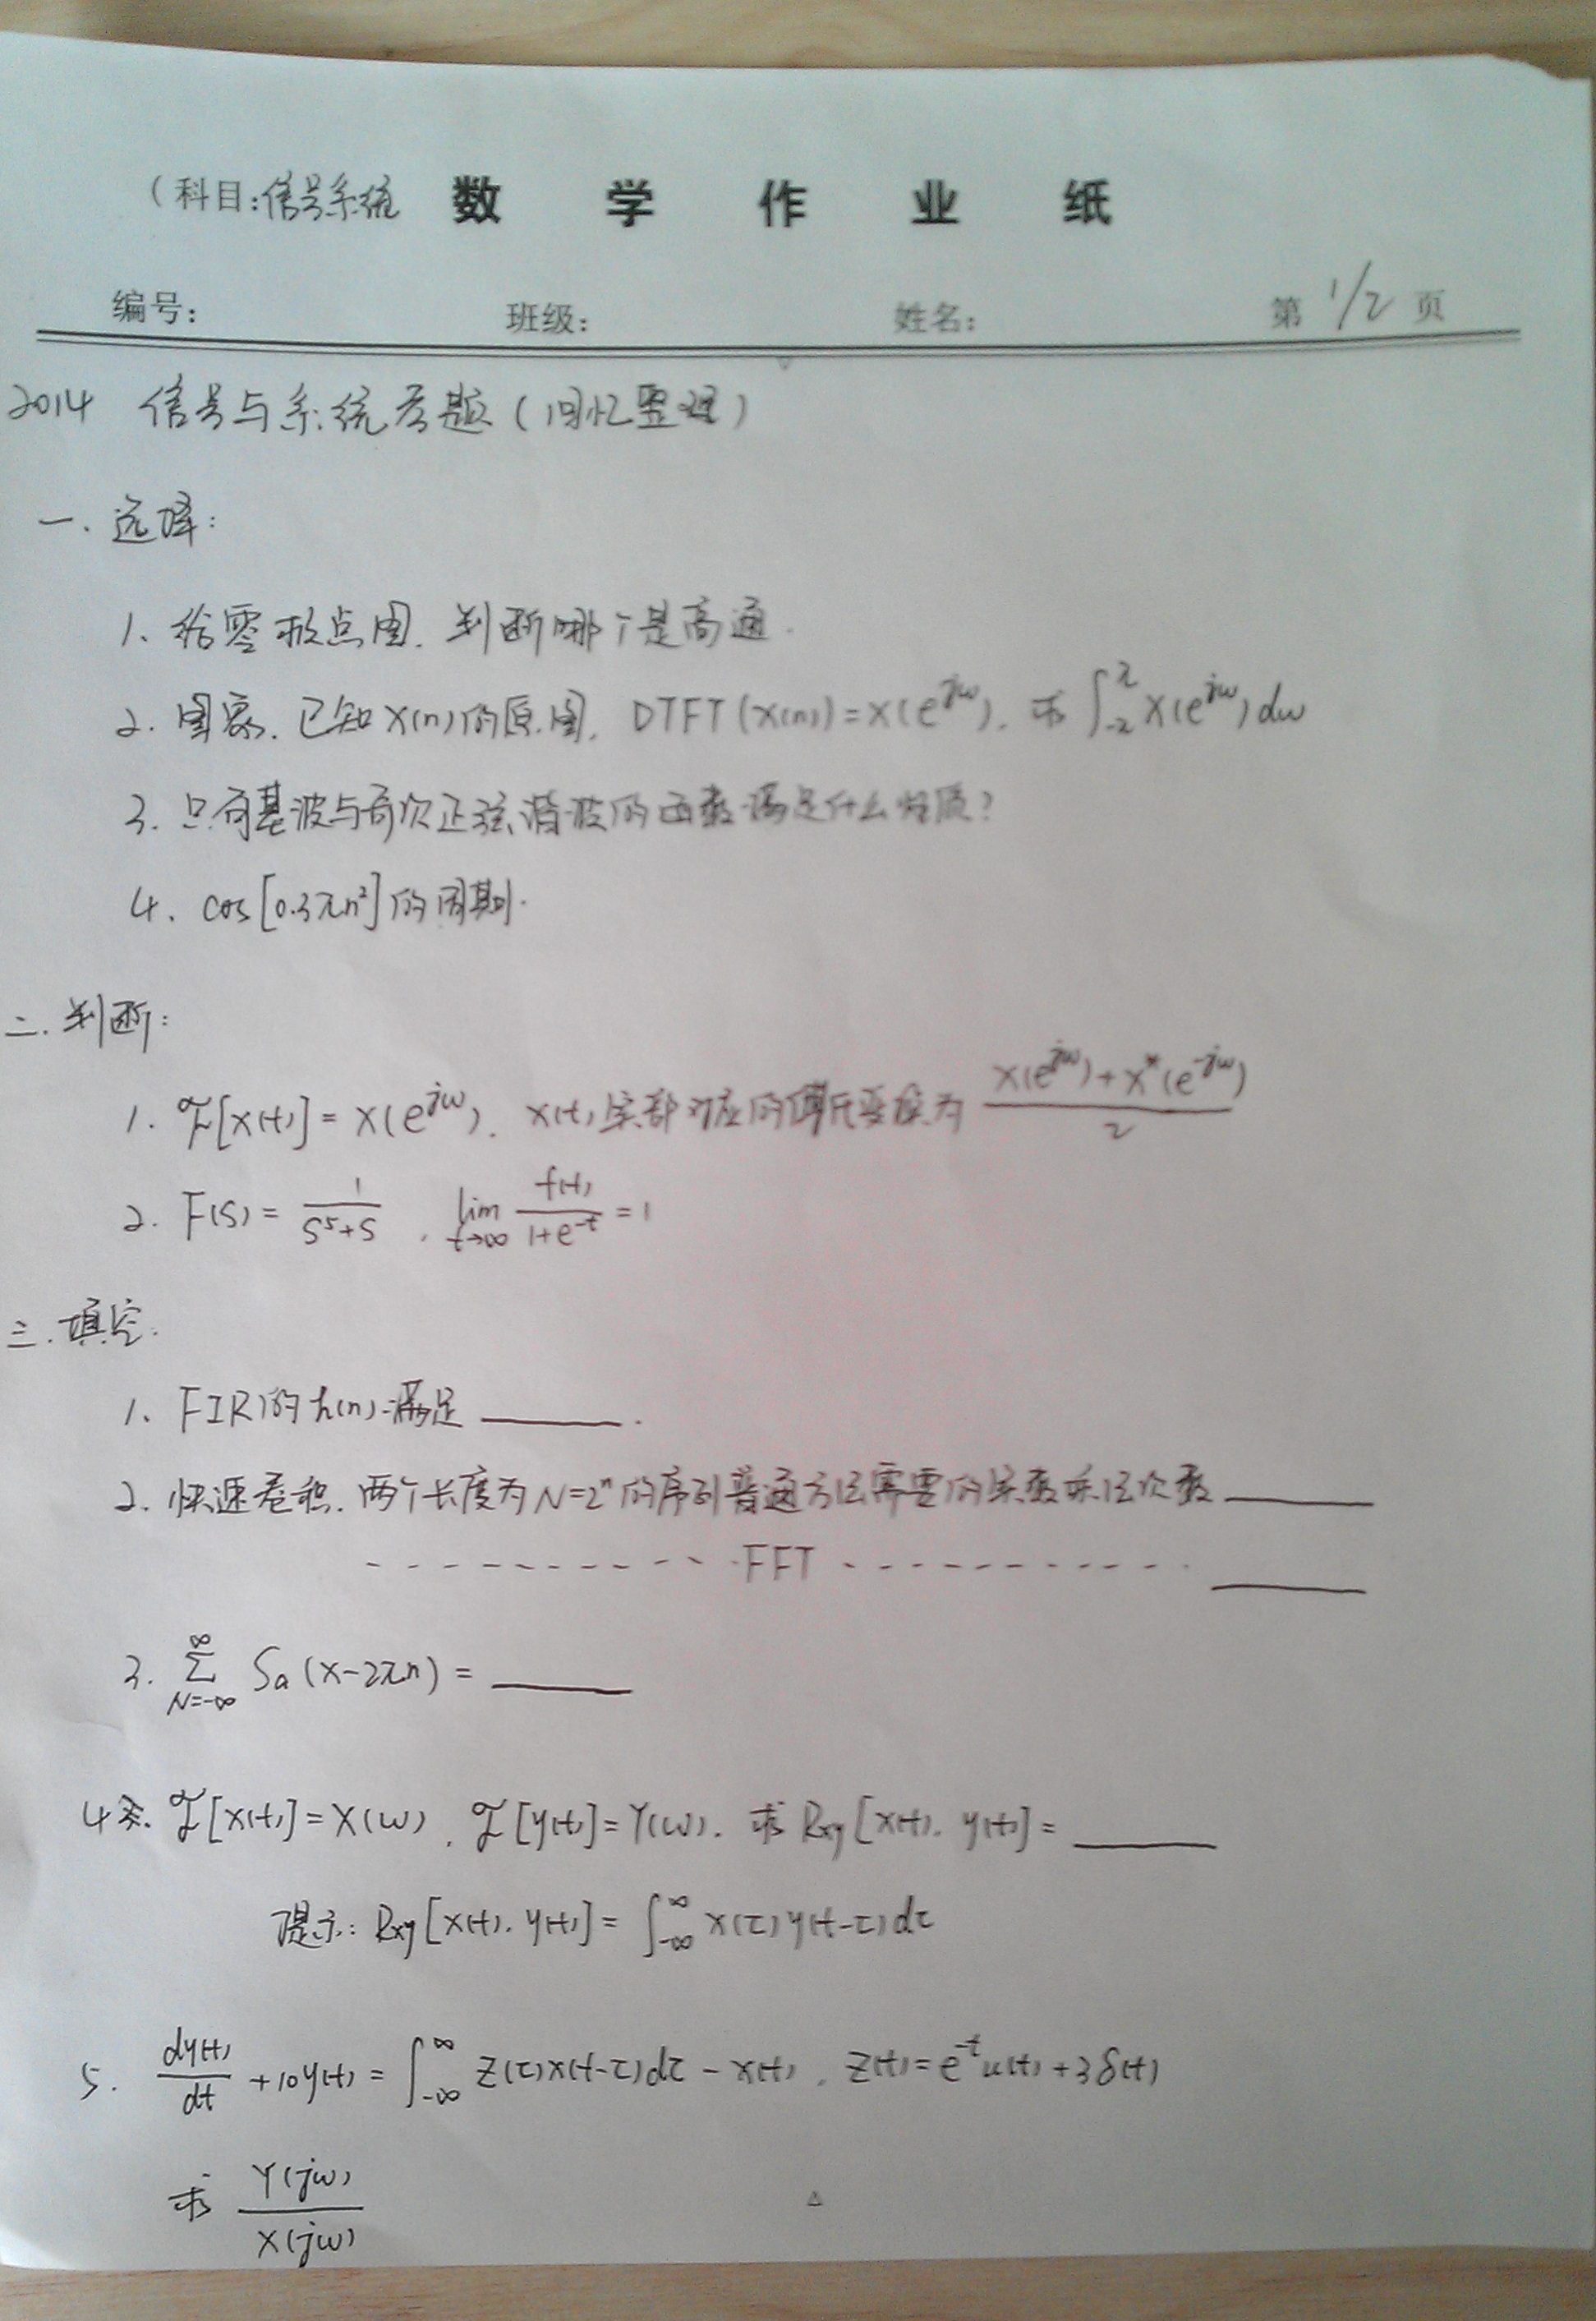 (科目:信号系统 数 学 作 业 纸
编号: 班级: 姓名: 第 1/2 页
2014 信号与系统考题(回忆整理)
一. 选择:
1、给零极点图. 判断哪个是高通.
2. 图象. 已知x(n)的原图. DTFT(x(n))=X(e^{jω}). 求 ∫_{-π}^{π} X(e^{jω})dω
3. 只有基波与奇次正弦谐波的函数满足什么性质?
4、cos[0.3πn²]的周期.
二. 判断:
1. ℱ[x(t)] = X(e^{jω}). x(t)实部对应的傅氏变换为 (X(e^{jω})+X*(e^{-jω}))/2
2. F(s) = 1/(s⁵+s) , lim_{t→∞} f(t)/(1+e^{-t}) = 1
三. 填空.
1、FIR的h(n)满足 ______.
2. 快速卷积. 两个长度为N=2ⁿ的序列普通方法需要的实数乘法次数______
- - - - - - - - - - - FFT - - - - - - - - - - - - ______
3. ∑_{N=-∞}^{∞} Sa(x-2πn) = ______
4. ℱ[x(t)]=X(ω), ℱ[y(t)]=Y(ω). 求 Rxy[x(t). y(t)] = ______
提示: Rxy[x(t). y(t)] = ∫_{-∞}^{∞} x(τ)y(t-τ)dτ
5. dy(t)/dt + 10y(t) = ∫_{-∞}^{∞} z(τ)x(t-τ)dτ - x(t), z(t)=e^{-t}u(t)+3δ(t)
求 Y(jω)/X(jω)